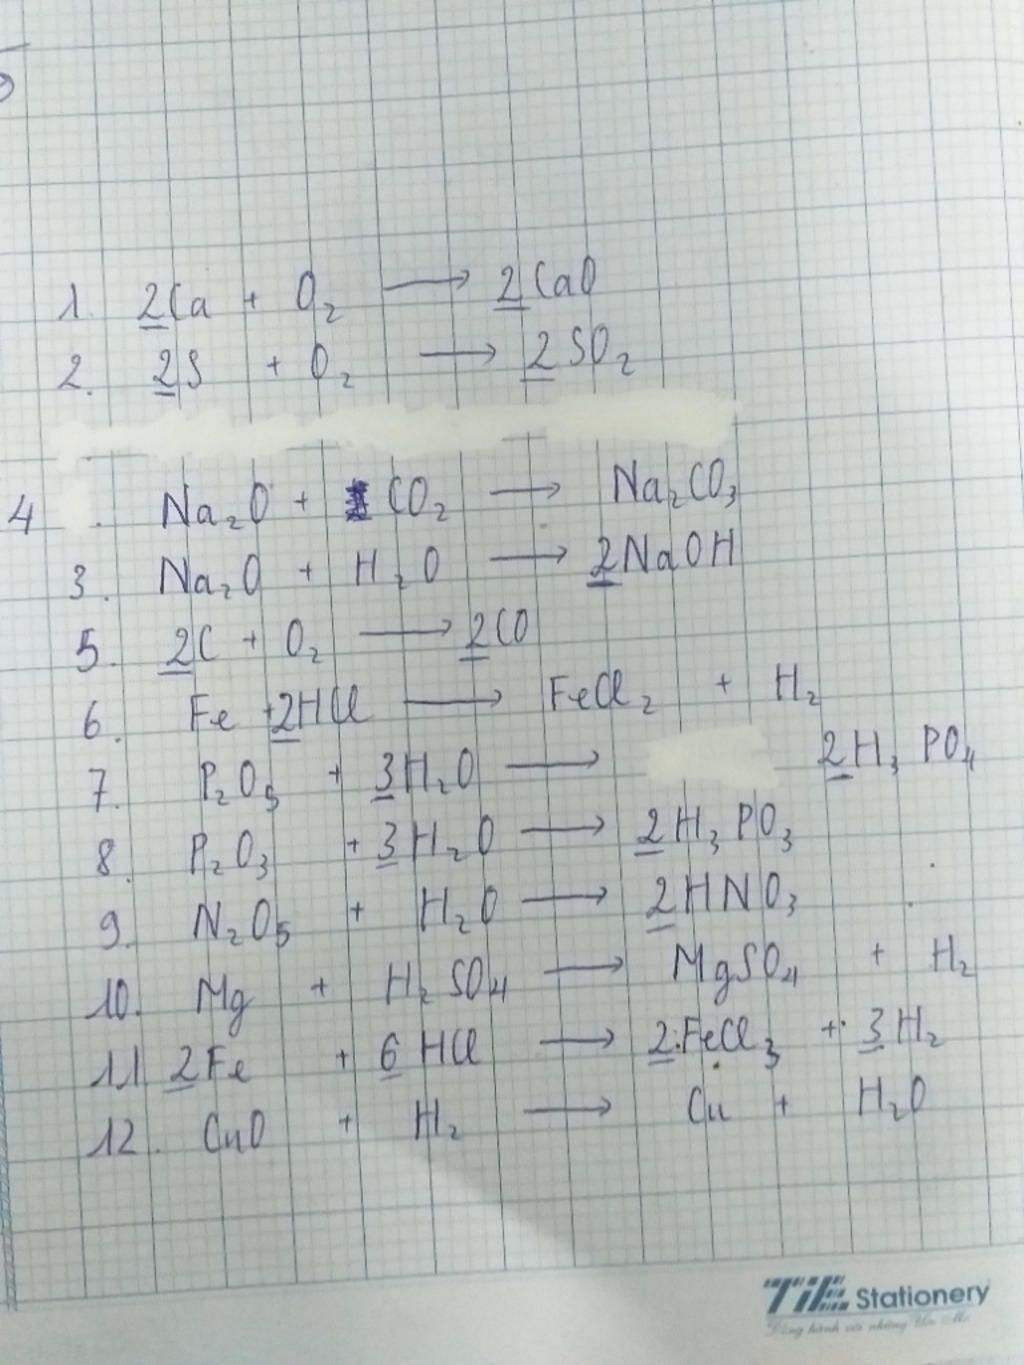 1. 2Ca + O₂ → 2CaO
2. 2S + O₂ → 2SO₂
4 . Na₂O + CO₂ → Na₂CO₃
3. Na₂O + H₂O → 2NaOH
5. 2C + O₂ → 2CO
6. Fe + 2HCl → FeCl₂ + H₂
7. P₂O₅ + 3H₂O → 2H₃PO₄
8. P₂O₃ + 3H₂O → 2H₃PO₃
9. N₂O₅ + H₂O → 2HNO₃
10. Mg + H₂SO₄ → MgSO₄ + H₂
11. 2Fe + 6HCl → 2FeCl₃ + 3H₂
12. CuO + H₂ → Cu + H₂O
TiE Stationery